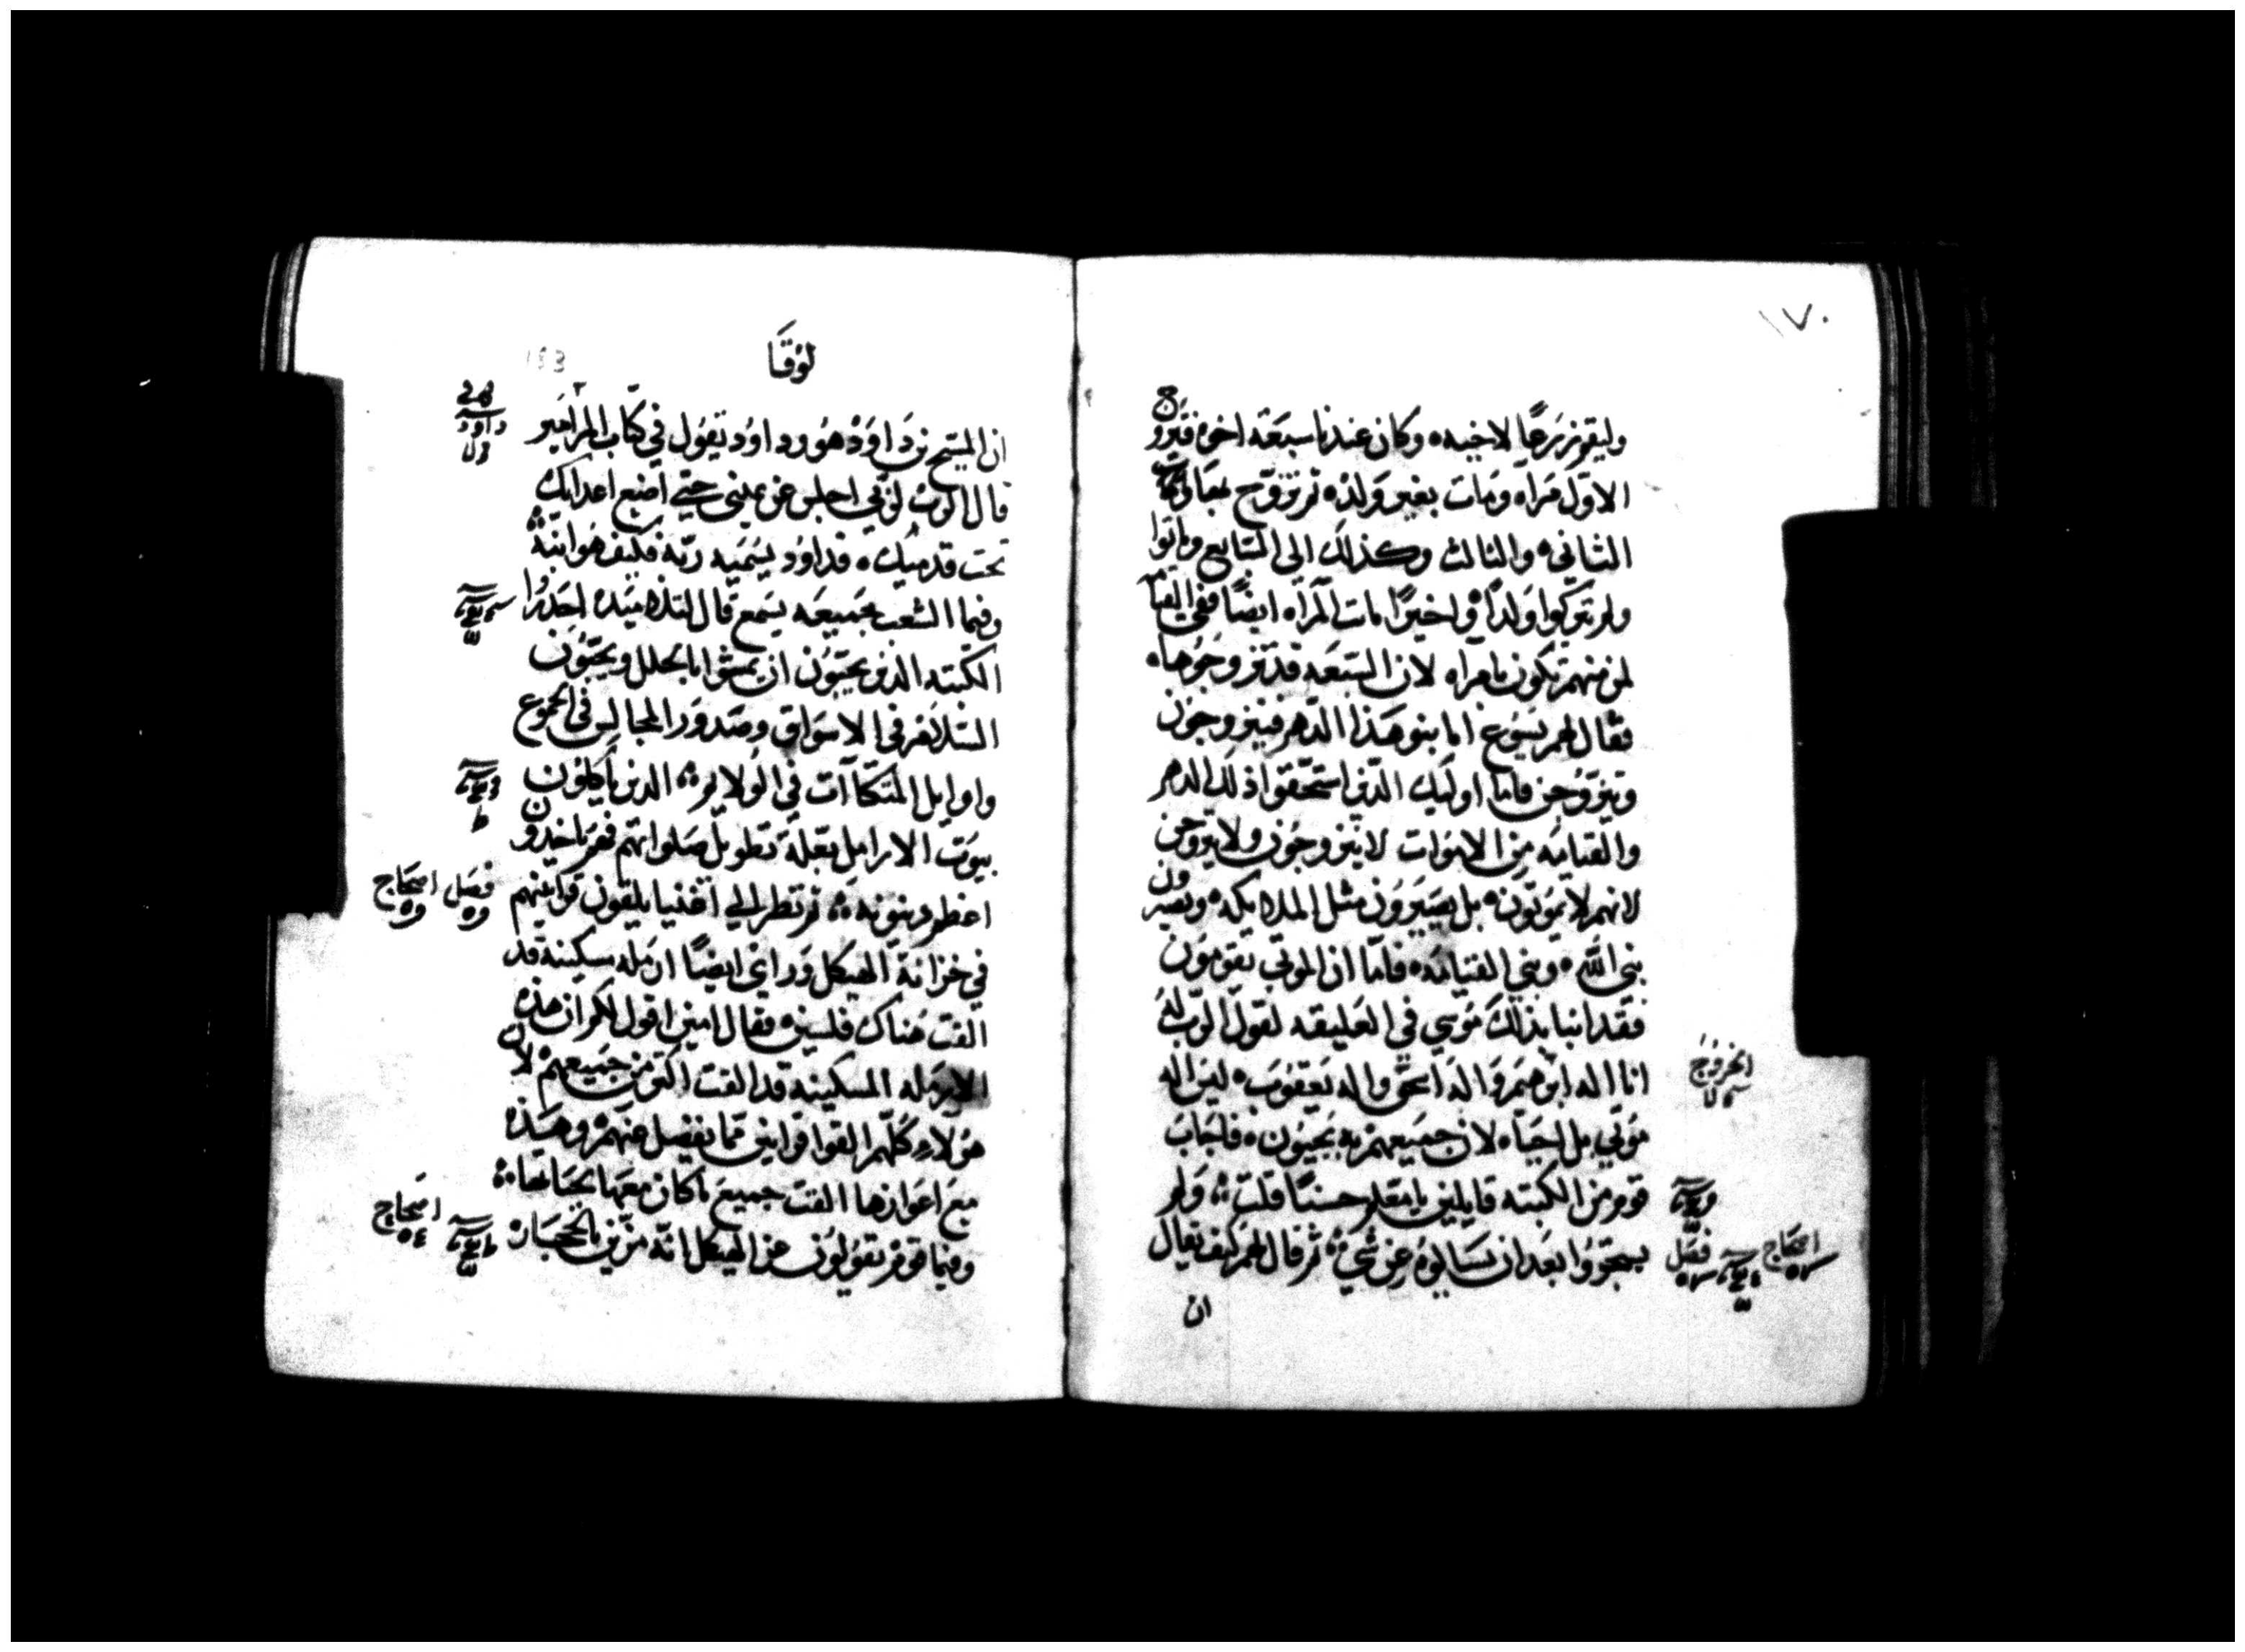 ١٧٠
وليقم زرعًا لاخيه ٥ وكان عندنا سبعة اخوه فتزوج
الاوّل مراه ومات بغير ولد ثم تزوّج بها
الثاني ٥ والثالث وكذلك الى السّابع وماتوا
ولم يتركوا ولدًا ٥ واخيرًا ماتت المرآه ايضًا ففي القيامه
لمن منهم تكون امرآه لان السّبعه قد تزوجوها ٥
فقال لهم يسوع اما بنو هذا الدهر فيتزوجون
ويتزوّجن فاما اوليك الذين استحقوا ذلك الدهر
والقيامه من الاموات لا يتزوجون ولا يتزوجن
لانهم لا يموتون ٥ بل يصيرون مثل الملايكه ٥ ويصيرون
بني الله ٥ وبني القيامه ٥ فامّا ان الموتي يقومون
فقد انبا بذلك موسي في العليقه لقول الرّب
انا اله ابرهيم واله اسحق واله يعقوب ٥ ليس اله
الخروج
موتي بل احيا ٥ لان جميعهم به يحيون ٥ فاجاب
قوم من الكتبه قايلين يا معلم حسنًا قلت ؞ ولم
يجترووا بعد ان يسالوه عن شي ؞ ثم قال لهم كيف يقال
فصل اصحاح
ان
لوقا
153
ان المسيح بن داوَد هو وداوُد يقول في كتاب المزامير
داود
قال الرّب لرّبي اجلس عن يميني حتي اضع اعدايك
تحت قدميك ٥ فداوُد يسميه ربّه فكيف هو ابنه ؞
وفيما الشعب بجميعه يسمع قال لتلاميذه احذروا
الكتبه الذين يحبّون ان يمشوا بالحلل ويحبّون
السّلام في الاسواق وصدور المجالس في الجموع
واوايل المتكاآت في الولايم ؞ الذين ياكلون
بيوت الارامل بعلّة تطويل صلواتهم فهم ياخذون
اعظم دينونه ؞ ثم نظر الي اغنيا يلقون قرابينهم
فصل اصحاح
في خزانة الهيكل وراي ايضًا ارمله مسكينة قد
القت هناك فلسين ٥ فقال امين اقول لكم ان هذه
الارمله المسكينه قد القت اكثر من جميعهم لان
هولاءِ كلّهم القوا قرابين ممّا يفضل عنهم ٥ وهذه
مع اعوازها القت جميع ما كان معها لحياتها ؞
وفيما قوم يقولون عن الهيكل انّه مزّين بالحجاره
اصحاح ٥٤